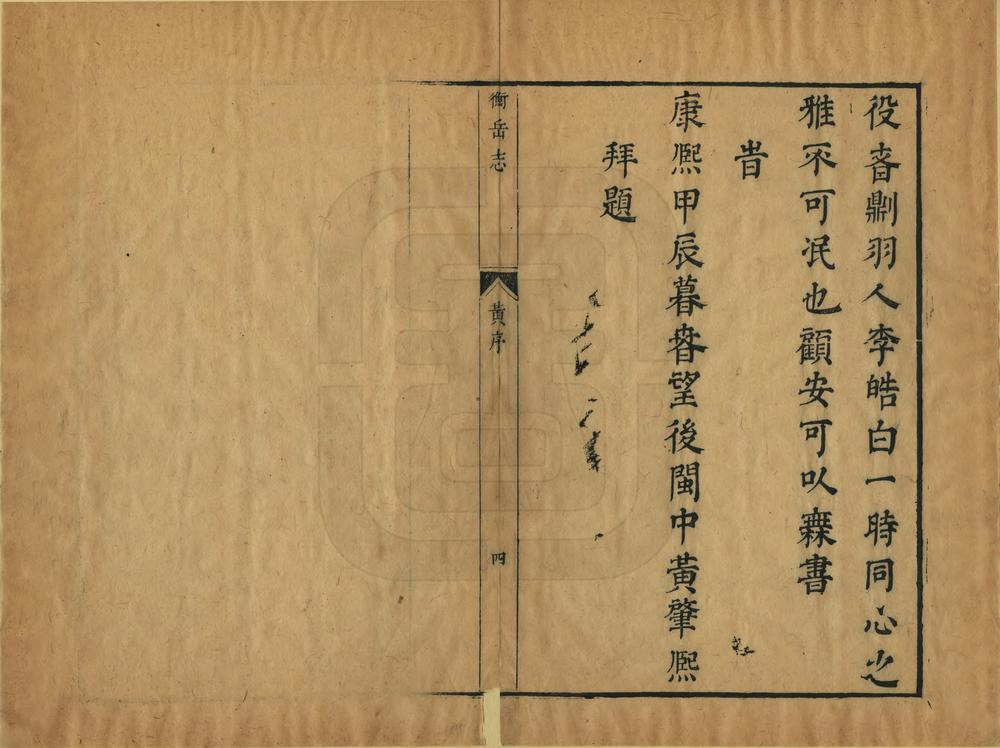 役者則羽人李皓白一時同心之
雅不可泯也顧安可㕥無書
旹
康熙甲辰暮春望後閩中黃肇熙
拜題
衡岳志
黃序
四